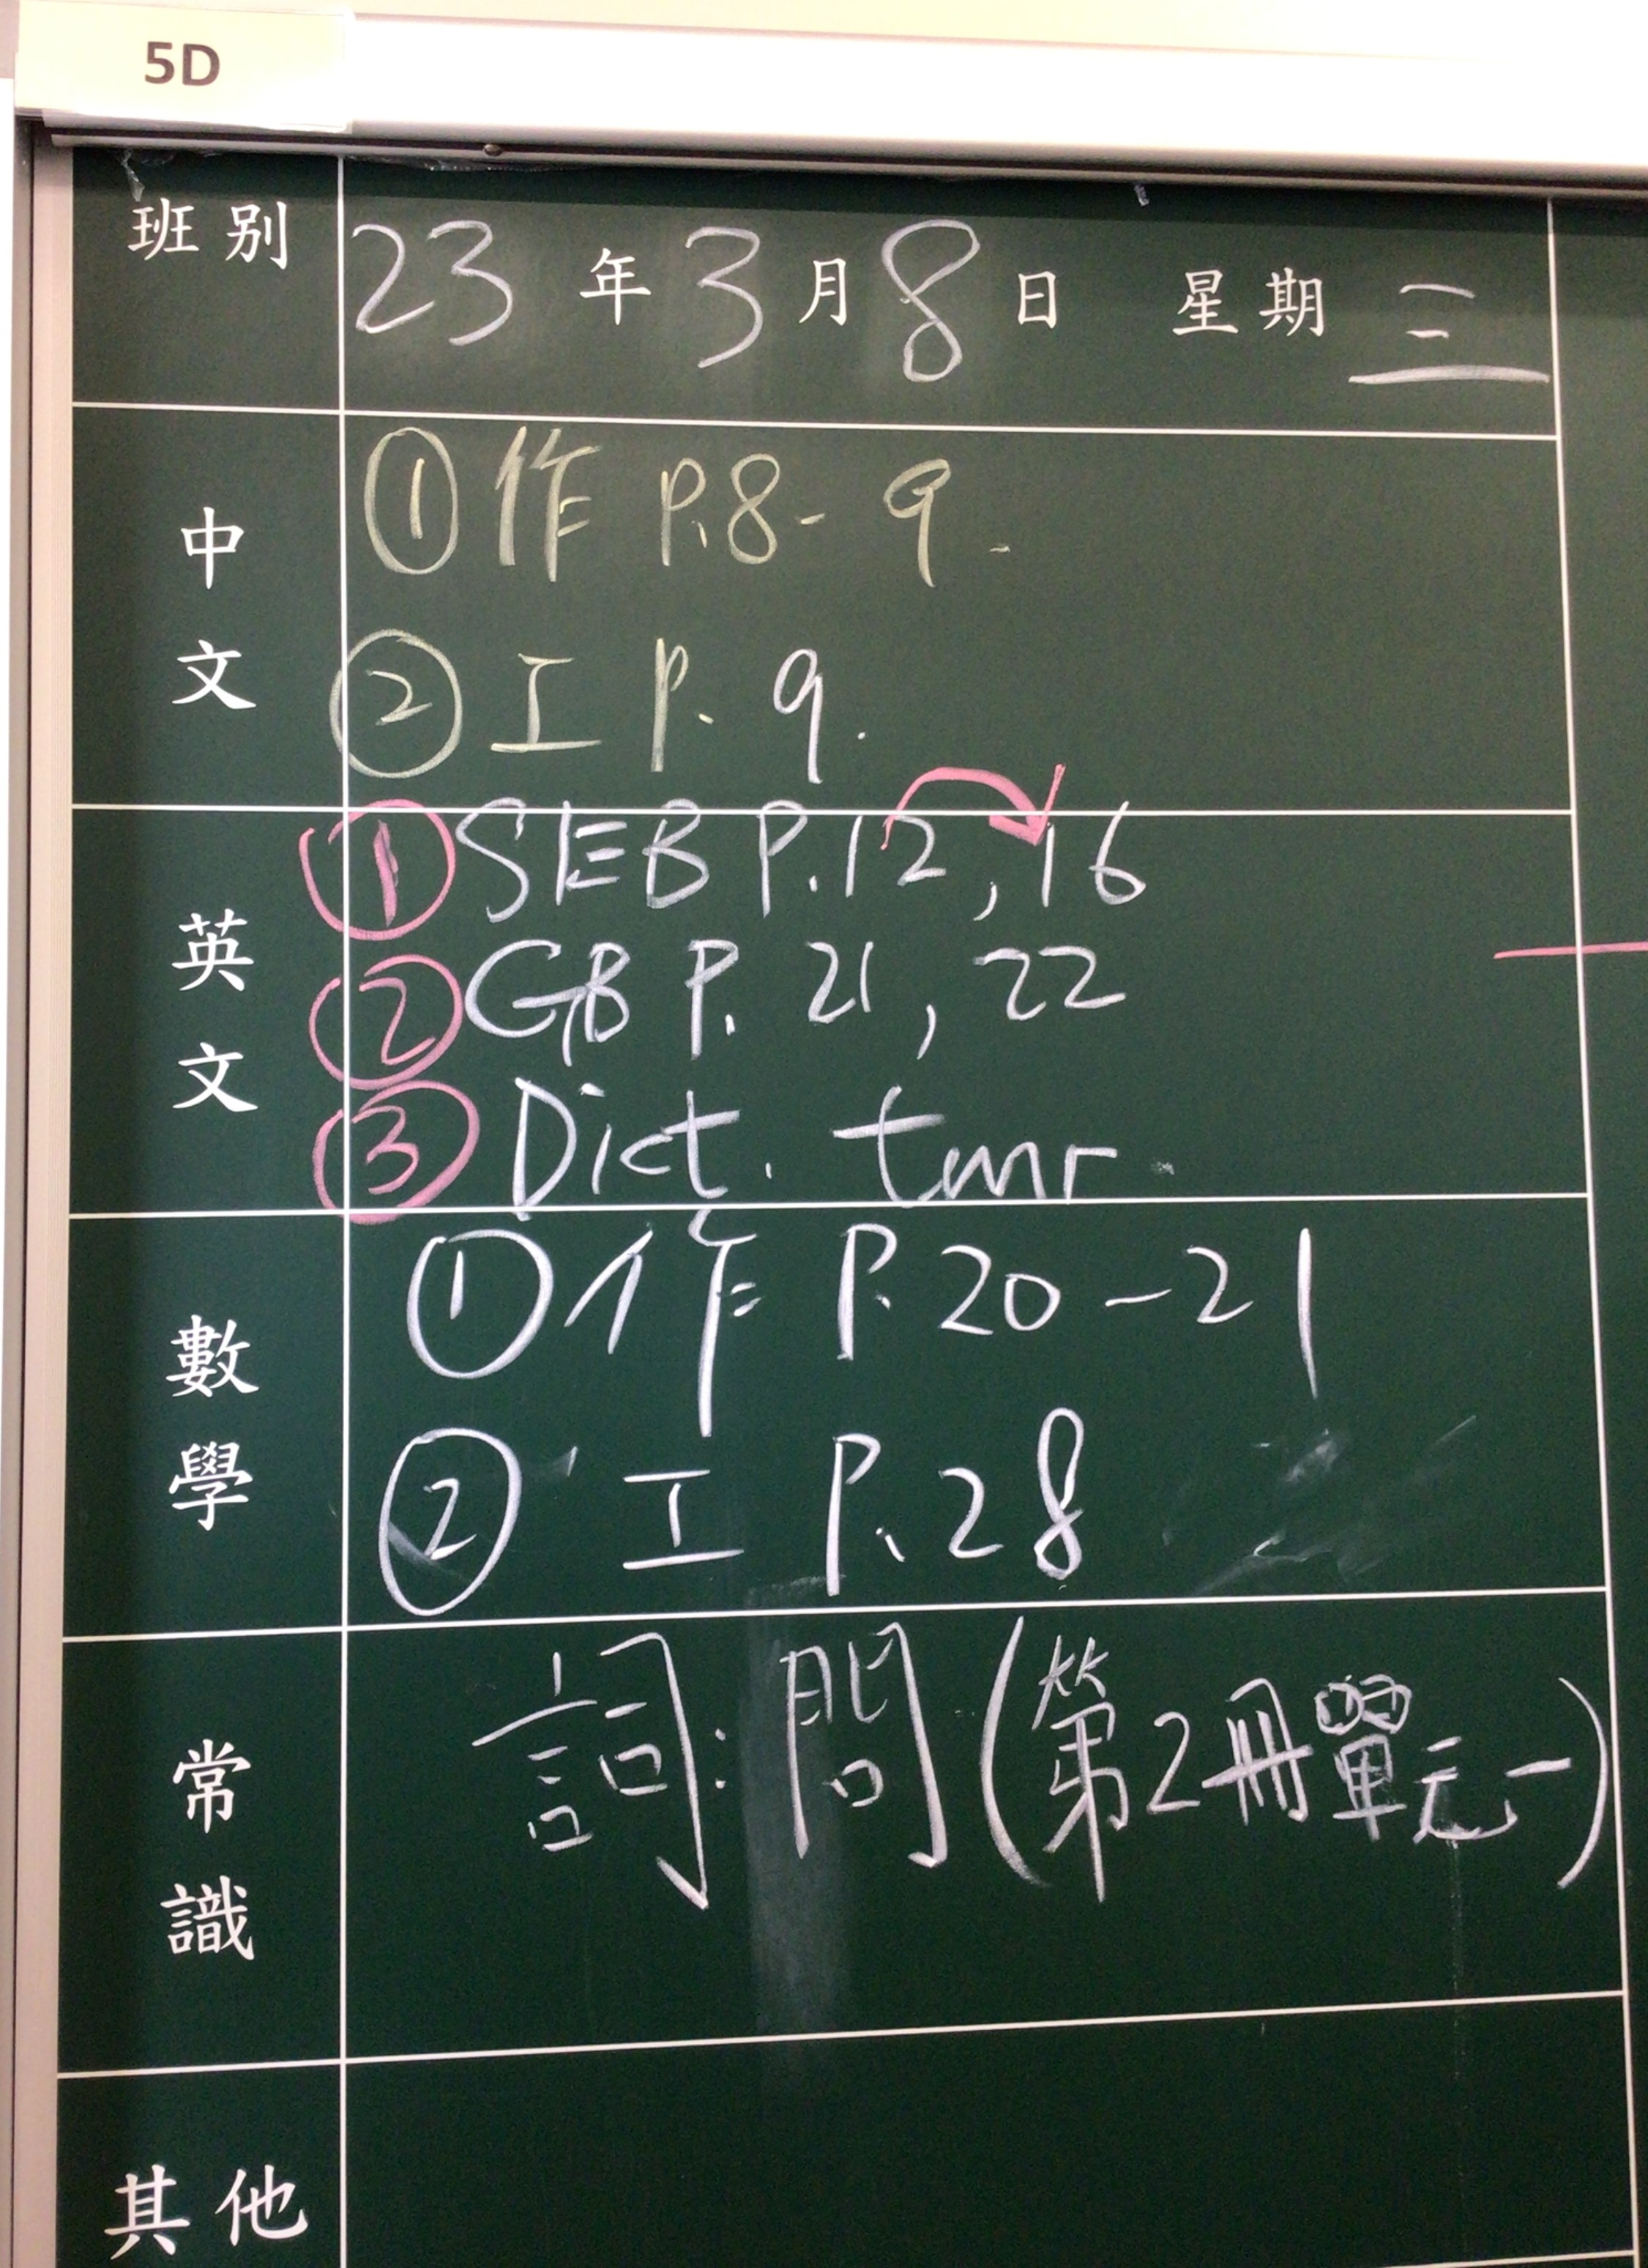 5D
班別 23 年 3 月 8 日 星期 三
中文
① 作 P.8-9.
② 工 P. 9.
英文
① SEB P.12, 16
② GB P. 21, 22
③ Dict. tmr.
數學
① 作 P. 20-21
② 工 P. 28
常識
詞: 問 (第2冊單元一)
其他